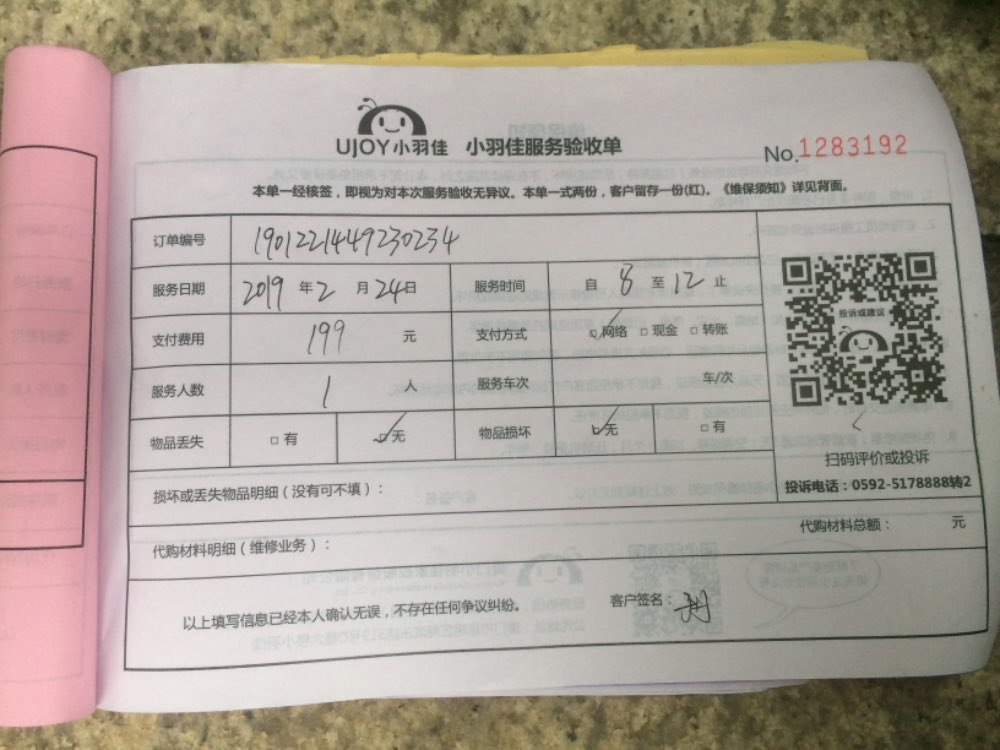 UJOY小羽佳 小羽佳服务验收单
No.1283192
本单一经核签，即视为对本次服务验收无异议。本单一式两份，客户留存一份(红)。《维保须知》详见背面。
订单编号 1901221449230234
服务日期 2019 年 2 月 24 日 服务时间 自 8 至 12 止
支付费用 199 元 支付方式 ☑网络 □现金 □转账
服务人数 1 人 服务车次 车/次
物品丢失 □有 ☑无 物品损坏 ☑无 □有
投诉或建议
扫码评价或投诉
投诉电话：0592-5178888转2
损坏或丢失物品明细（没有可不填）：
代购材料明细（维修业务）： 代购材料总额： 元
以上填写信息已经本人确认无误，不存在任何争议纠纷。 客户签名：